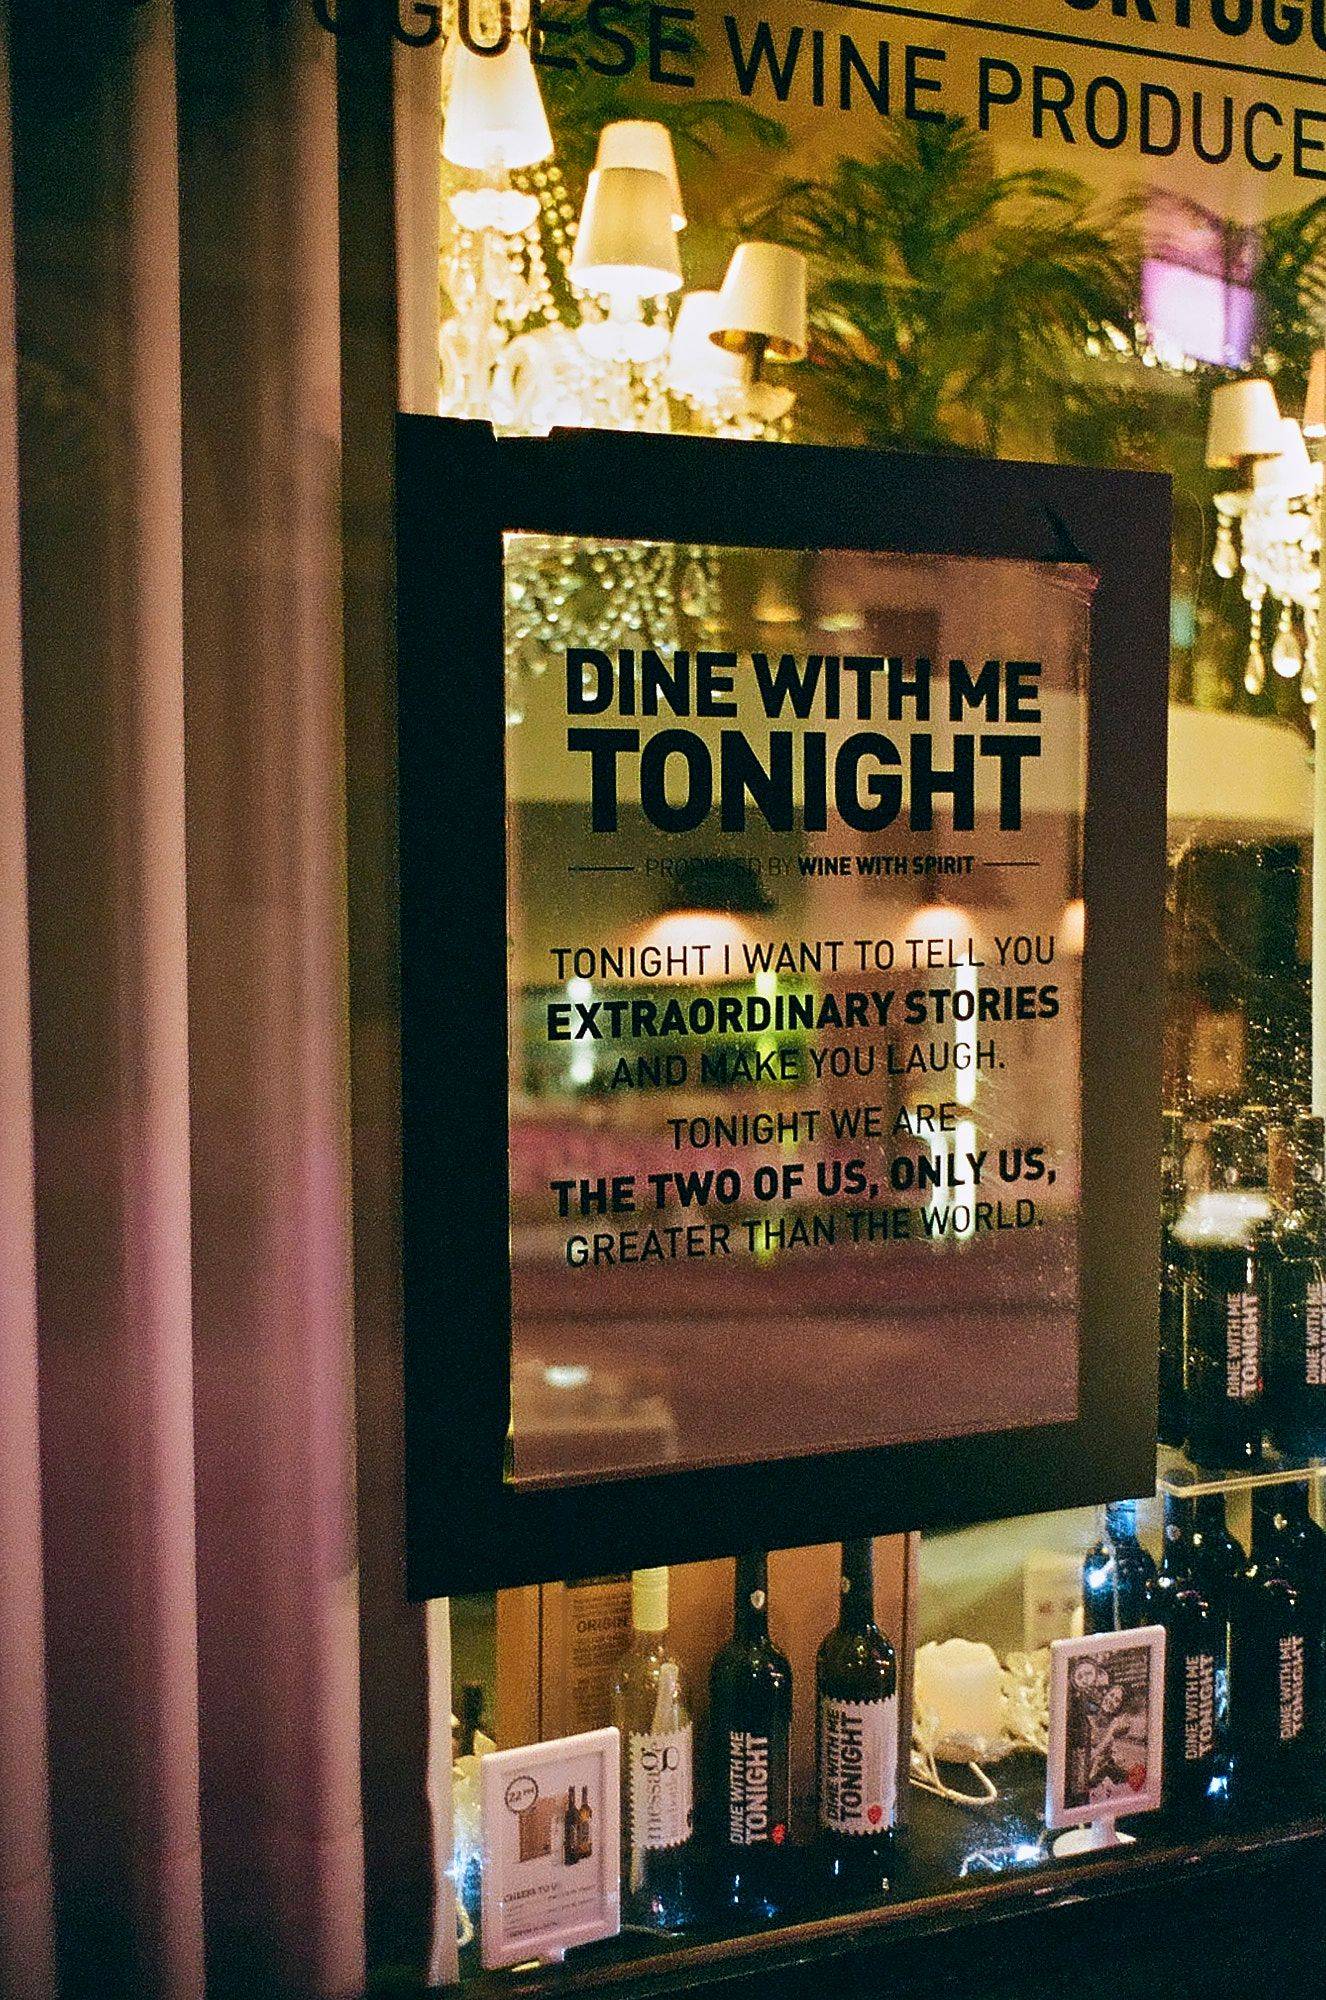 PORTUGU
TUGUESE WINE PRODUCE
DINE WITH ME
TONIGHT
PRODUCED BY WINE WITH SPIRIT
TONIGHT I WANT TO TELL YOU
EXTRAORDINARY STORIES
AND MAKE YOU LAUGH.
TONIGHT WE ARE
THE TWO OF US, ONLY US,
GREATER THAN THE WORLD.
DINE WITH ME
TONIGHT
DINE WITH ME
ORIGIN
message
DINE WITH ME
TONIGHT
DINE WITH ME
TONIGHT
DINE WITH ME
TONIGHT
DINE WITH ME
TONIGHT
CHEERS TO U